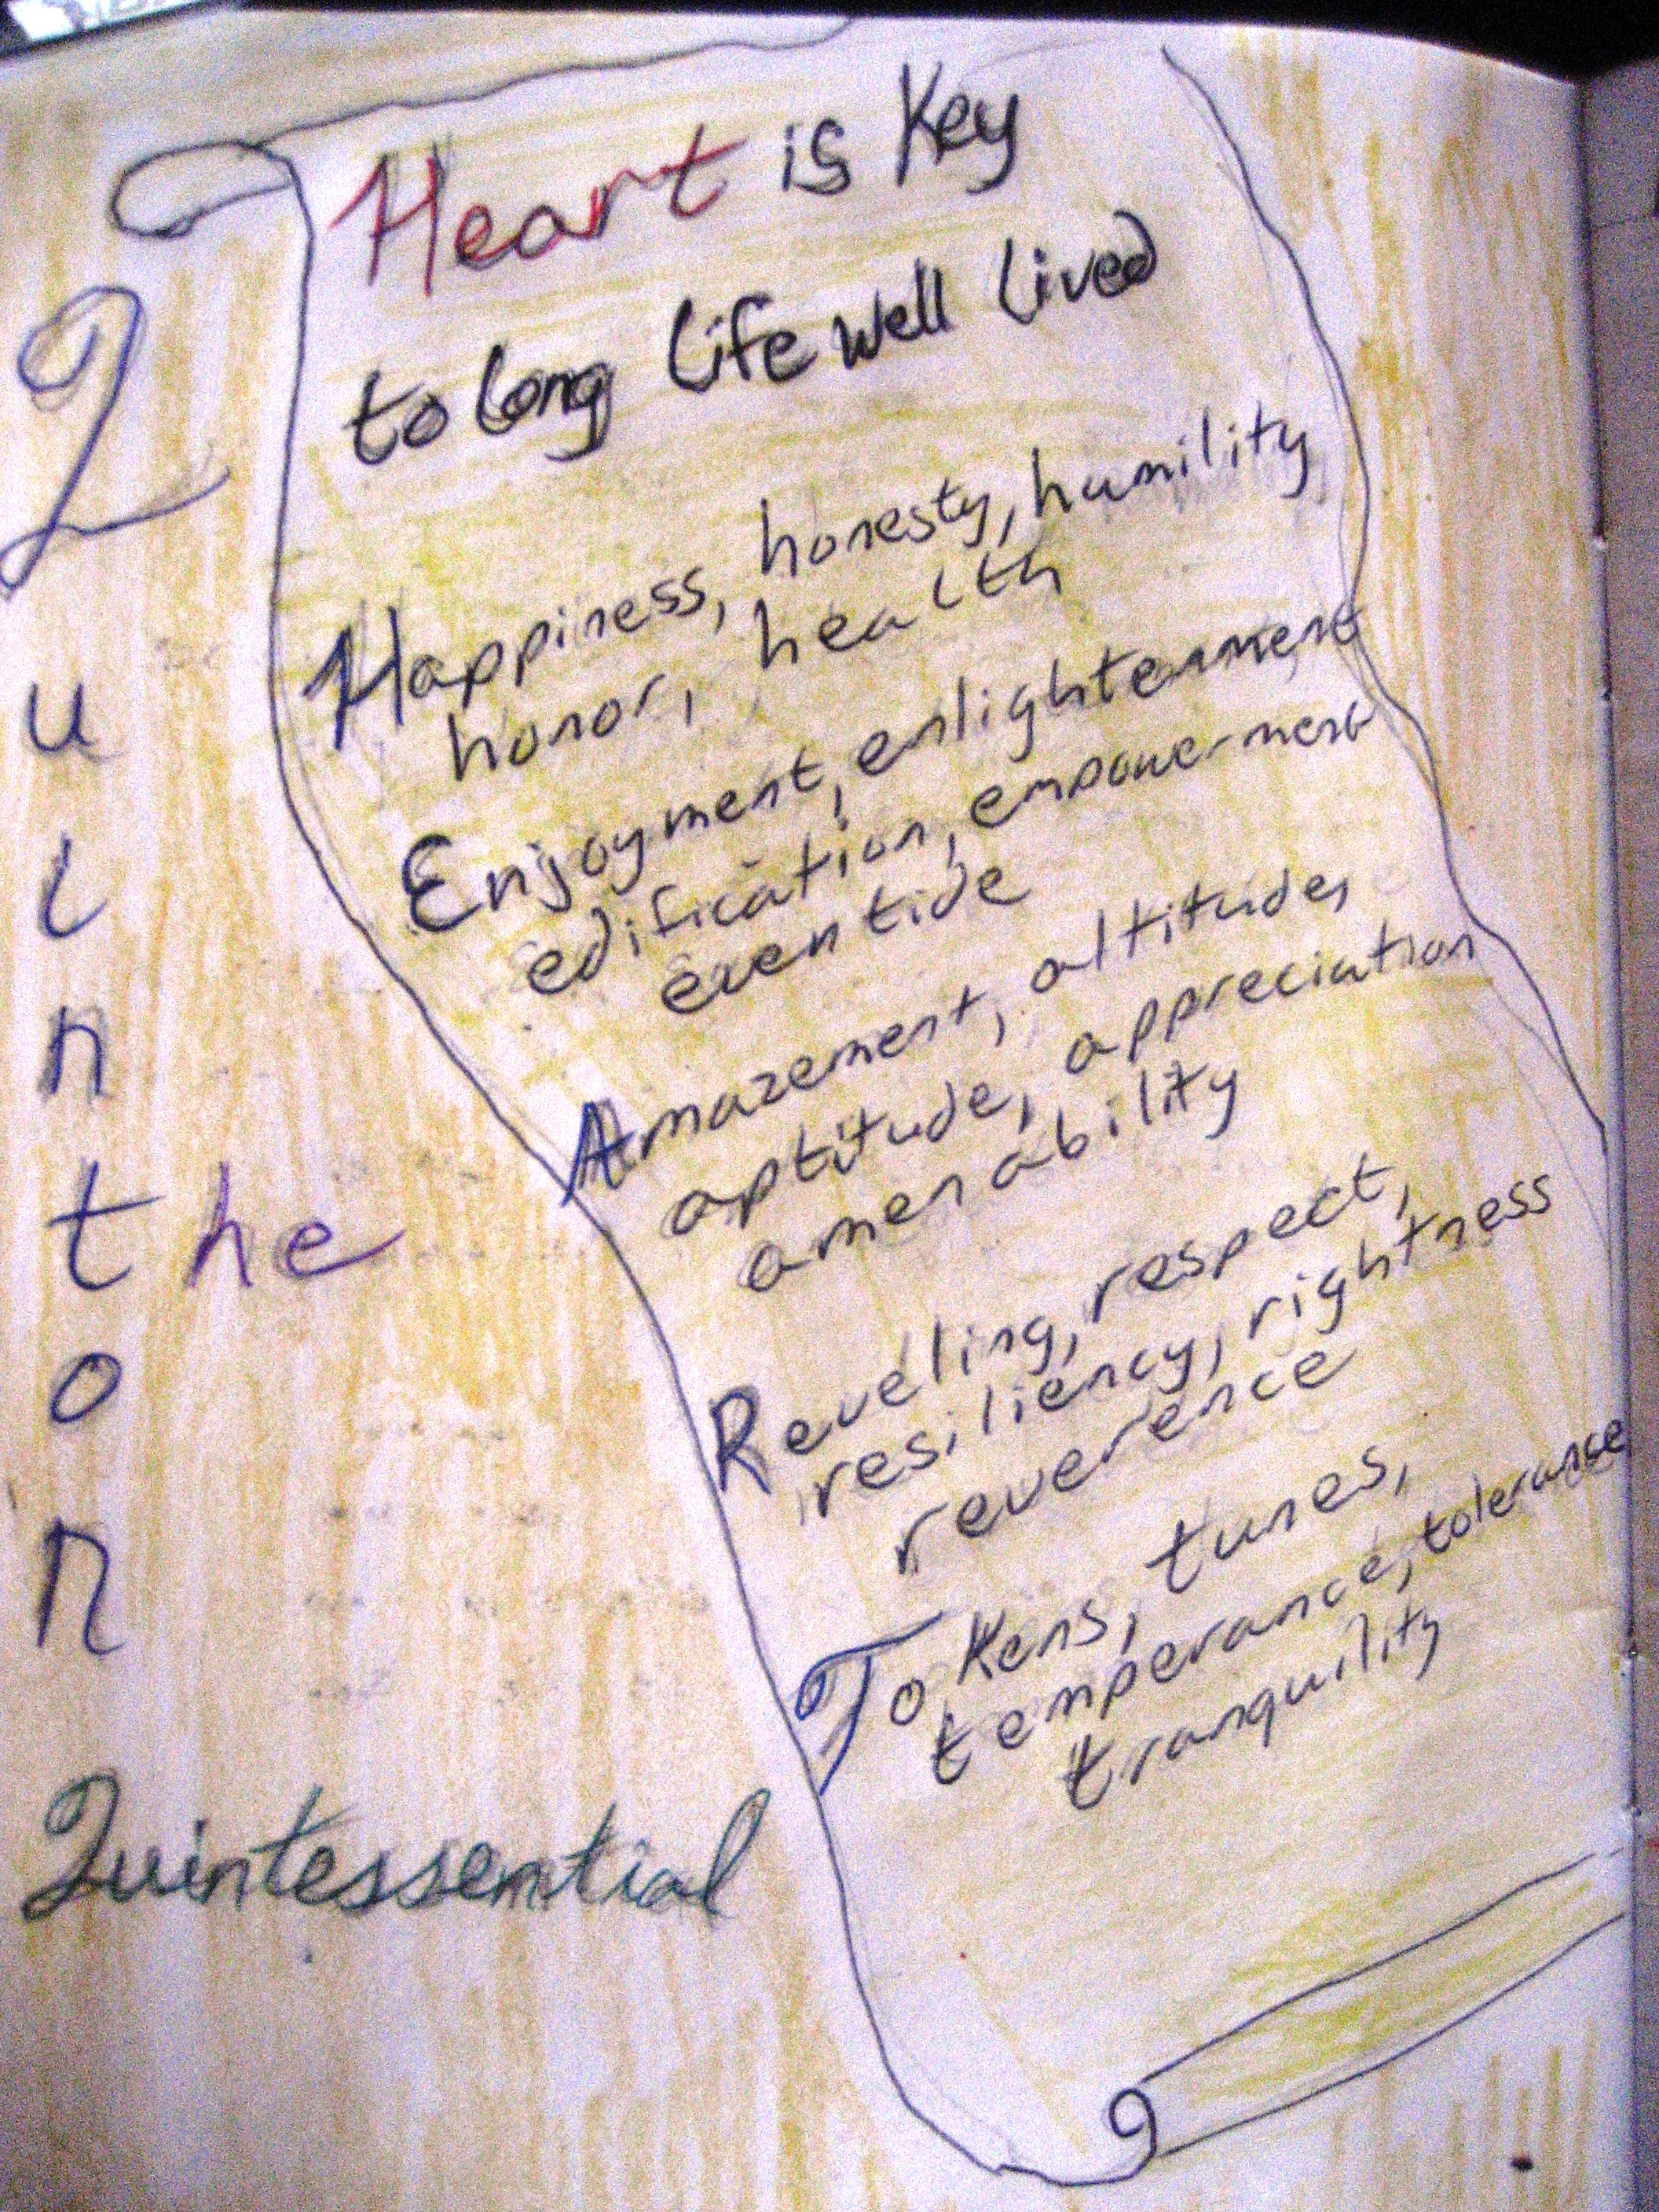 Heart is Key
to long life well lived
Happiness, honesty, humility
honor, health
Enjoyment, enlightenment
edification, empowerment
eventide
Amazement, altitudes
aptitude, appreciation
amenability
Reveling, respect,
resiliency, rightness
reverence
Tokens, tunes,
temperance, tolerance
tranquility
Q
u
i
n
the
o
n
Quintessential